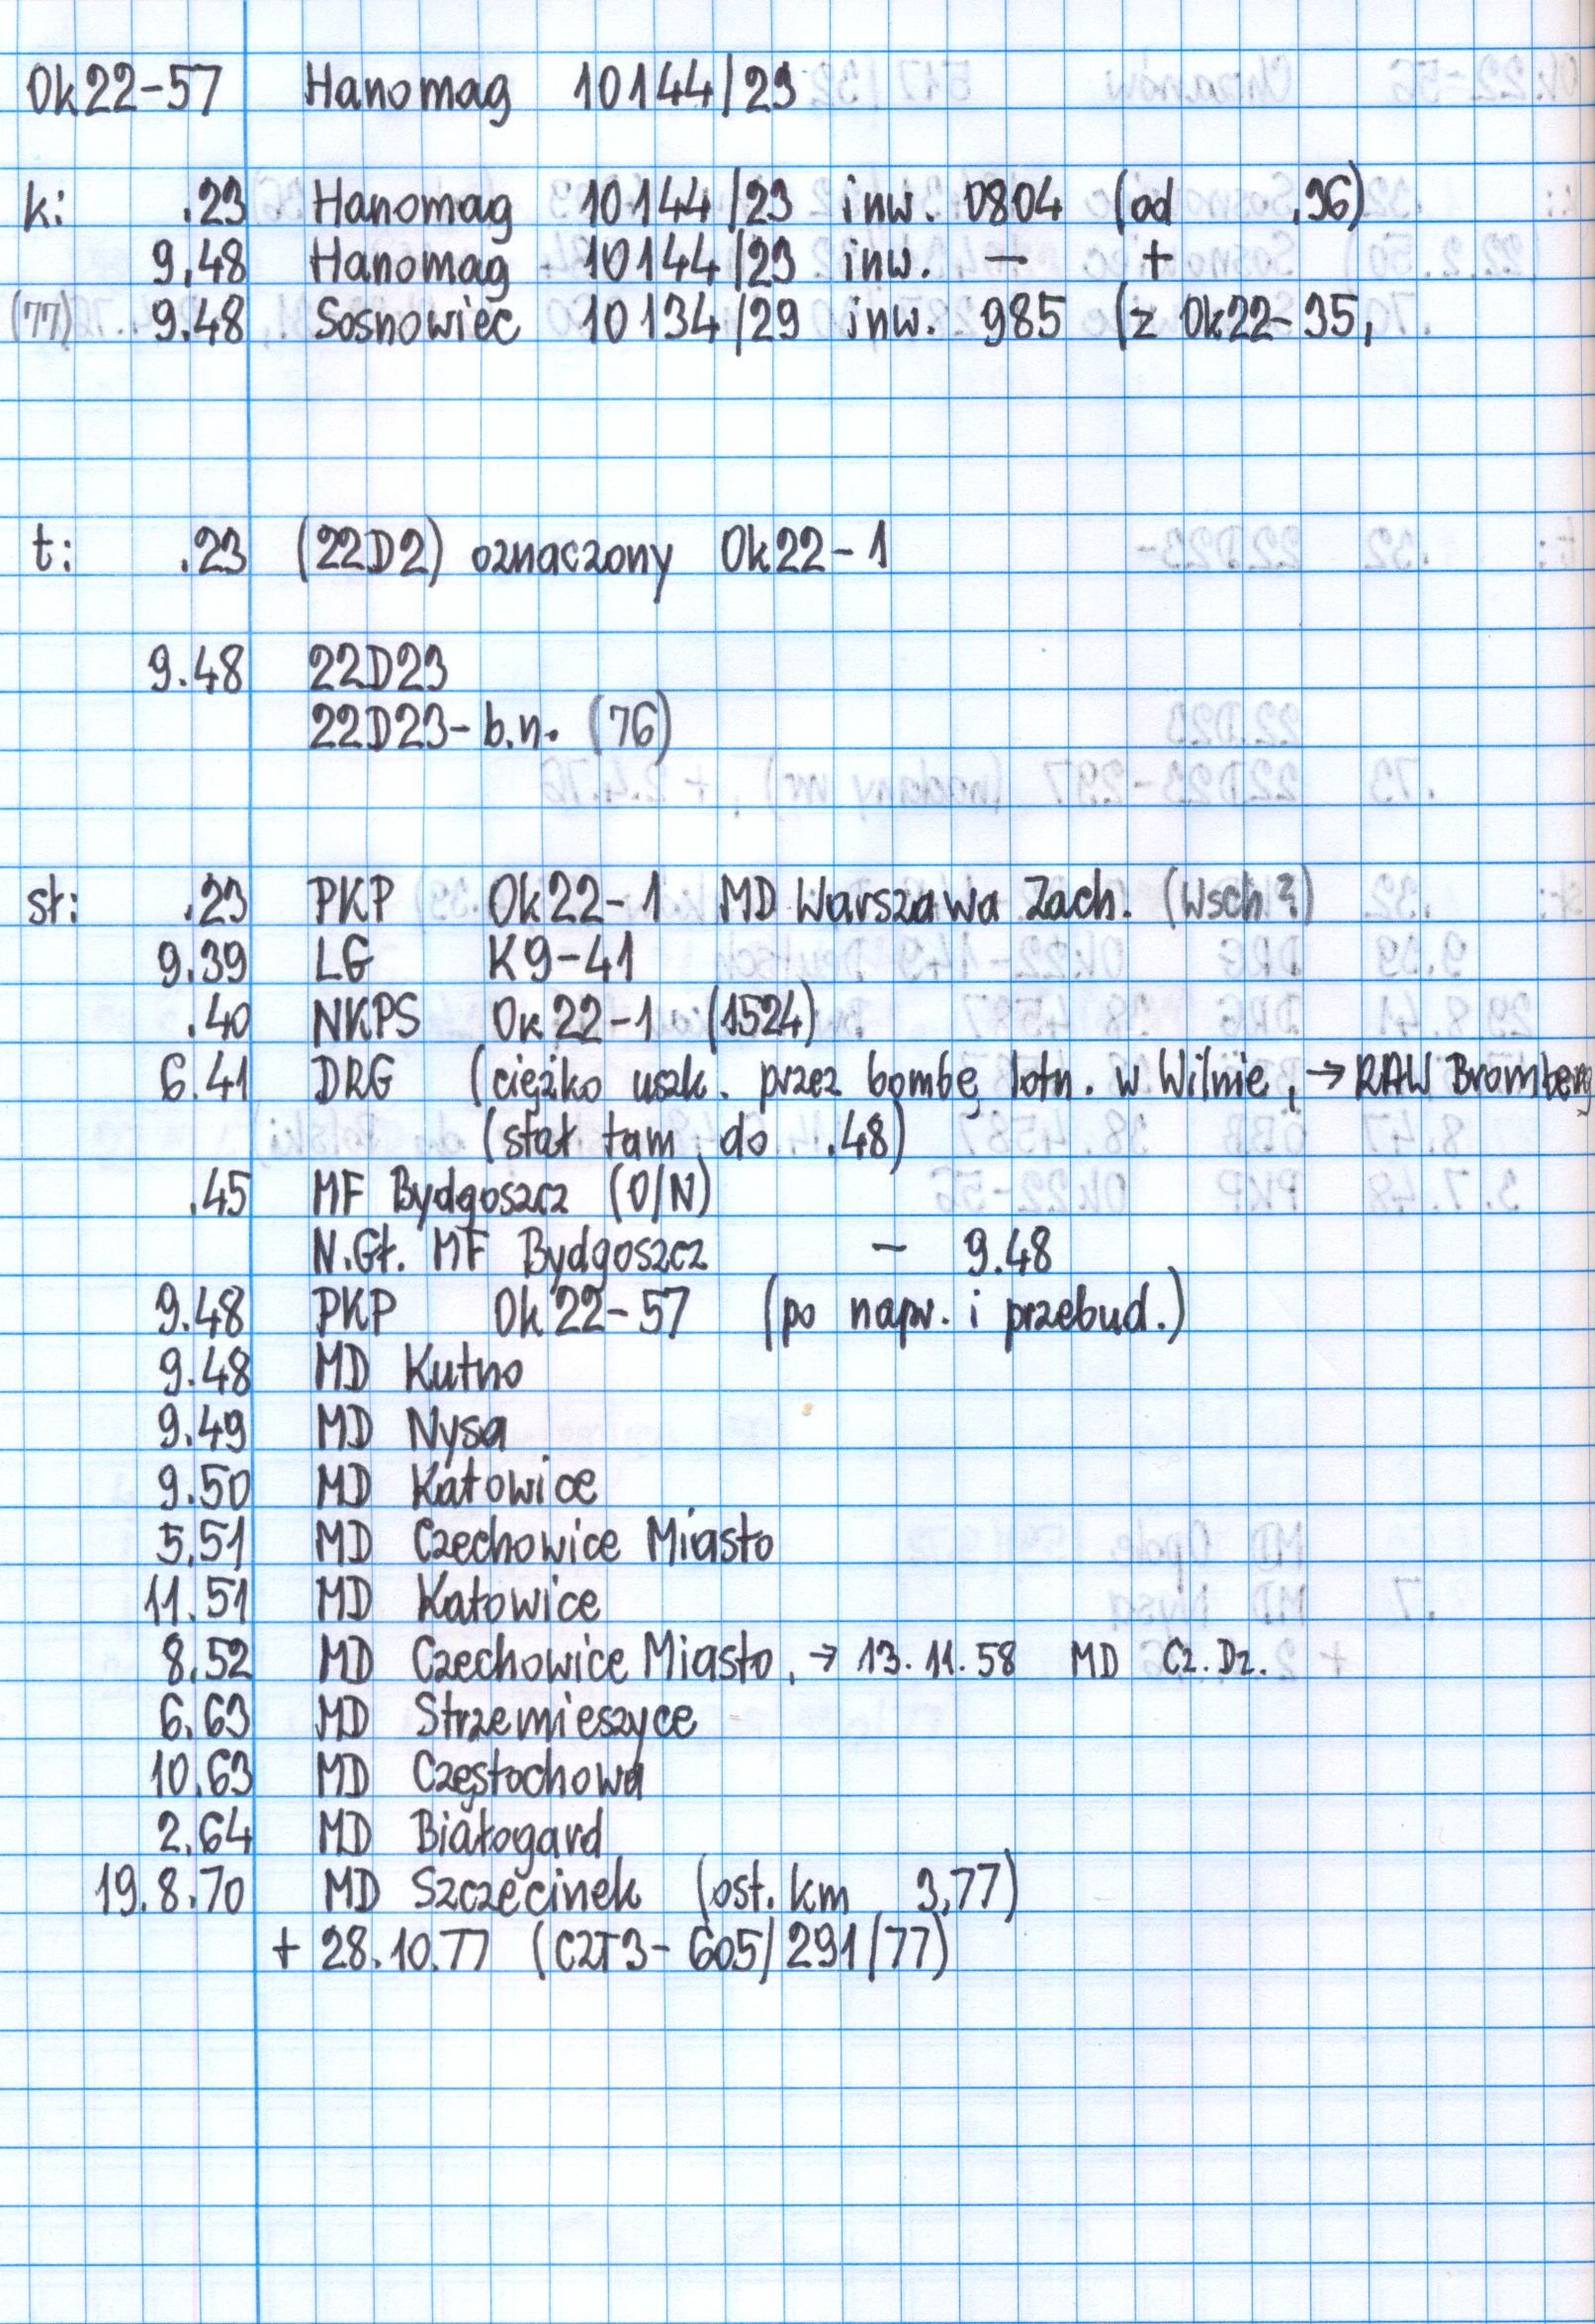 Ok22-57 Hanomag 10144/23
k: .23 Hanomag 10144/23 inw. 0804 (od .36)
9.48 Hanomag 10144/23 inw. - +
(77) 9.48 Sosnowiec 10134/29 inw. 985 (z Ok22-35,
t: .23 (22D2) oznaczony Ok22-1
9.48 22D23
22D23-b.n. (76)
st: .23 PKP Ok22-1 MD Warszawa Zach. (Wsch?)
9.39 LG K9-41
.40 NKPS Ok22-1 (1524)
6.41 DRG (ciężko uszk. przez bombę lotn. w Wilnie, → RAW Bromberg
(stał tam do .48)
.45 MF Bydgoszcz (O/N)
N.Gł. MF Bydgoszcz - 9.48
9.48 PKP Ok22-57 (po napr. i przebud.)
9.48 MD Kutno
9.49 MD Nysa
9.50 MD Katowice
5.51 MD Czechowice Miasto
11.51 MD Katowice
8.52 MD Czechowice Miasto, → 13.11.58 MD Cz.Dz.
6.63 MD Strzemieszyce
10.63 MD Częstochowa
2.64 MD Białogard
19.8.70 MD Szczecinek (ost. km 3.77)
+ 28.10.77 (CZT3-605/291/77)